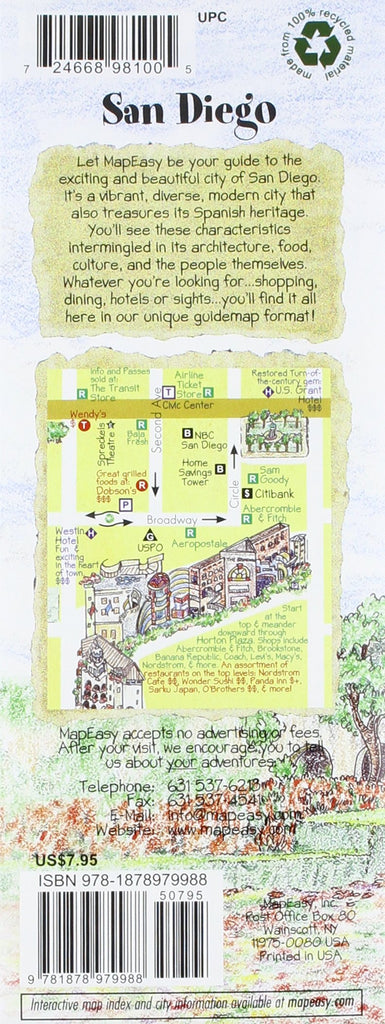 UPC
7 24668 98100 5
made from 100% recycled material
San Diego
Let MapEasy be your guide to the
exciting and beautiful city of San Diego.
It's a vibrant, diverse, modern city that
also treasures its Spanish heritage.
You'll see these characteristics
intermingled in its architecture, food,
culture, and the people themselves.
Whatever you're looking for...shopping,
dining, hotels or sights...you'll find it all
here in our unique guidemap format!
Info and Passes
sold at:
The Transit
Store
R
Airline
Ticket
Store
R
Restored Turn-of-
the-century gem:
H U.S. Grant
Hotel
$$$
T
Civic Center
Second Ave
Wendy's
$ T
Spreckels
Theatre
R
Baja
Fresh
B NBC
San Diego
Home
Savings B
Tower
Great grilled
foods at:
Dobson's R
$$$
P
Circle
R Sam
Goody
$ Citibank
Abercrombie
R & Fitch
Broadway
Westin H
Hotel
Fun &
exciting
in the heart
of town
$$$
USPO
R
Aeropostale
Start
at the
top & meander
downward through
Horton Plaza. Shops include
Abercrombie & Fitch, Brookstone,
Banana Republic, Coach, Levi's, Macy's,
Nordstrom, & more. An assortment of
restaurants on the top levels: Nordstrom
Cafe $$, Wonder Sushi $$, Panda Inn $+,
Sarku Japan, O'Brothers $$, & more!
MapEasy accepts no advertising or fees.
After your visit, we encourage you to tell
us about your adventures.
Telephone: 631 537-6213
Fax: 631 537-4541
E-Mail: info@mapeasy.com
Website: www.mapeasy.com
US$7.95
ISBN 978-1878979988
50795
9 781878 979988
MapEasy, Inc.
Post Office Box 80
Wainscott, NY
11975-0080 USA
Printed in USA
Interactive map index and city information available at mapeasy.com